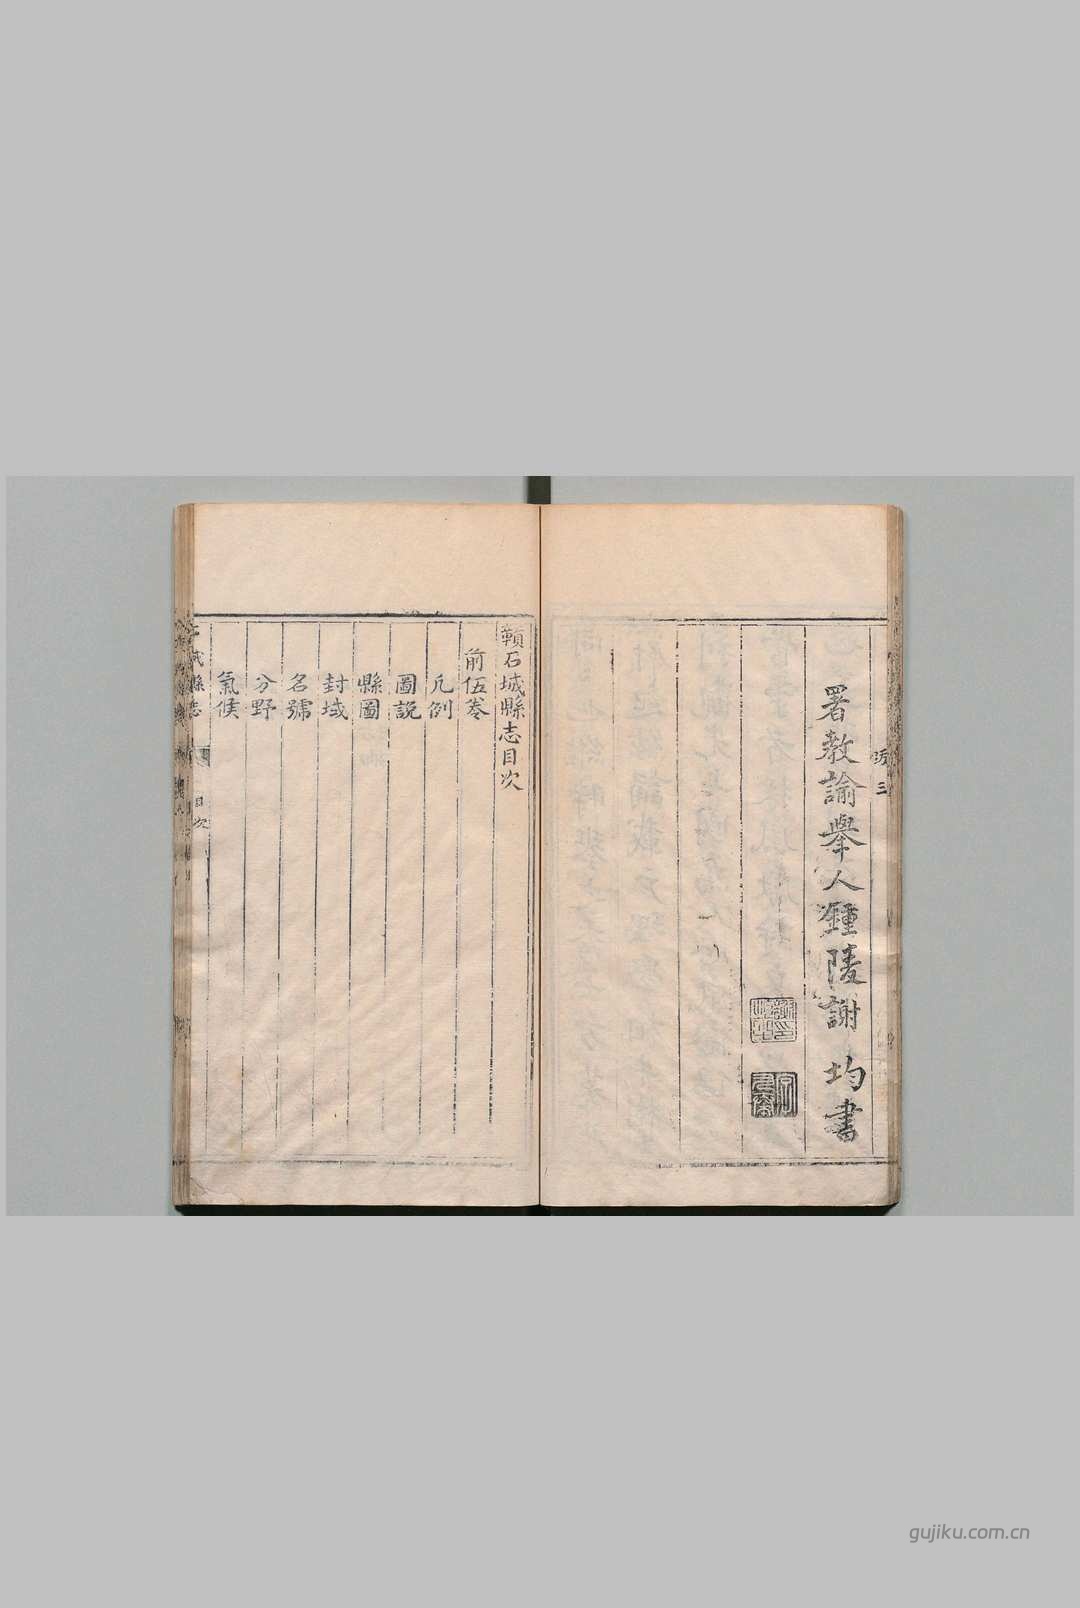 跋三
署教諭舉人鍾陵謝 均書
贛石城縣志目次
前伍卷
凡例
圖說
縣圖
封域
名號
分野
氣候
石城縣志
目次
gujiku.com.cn